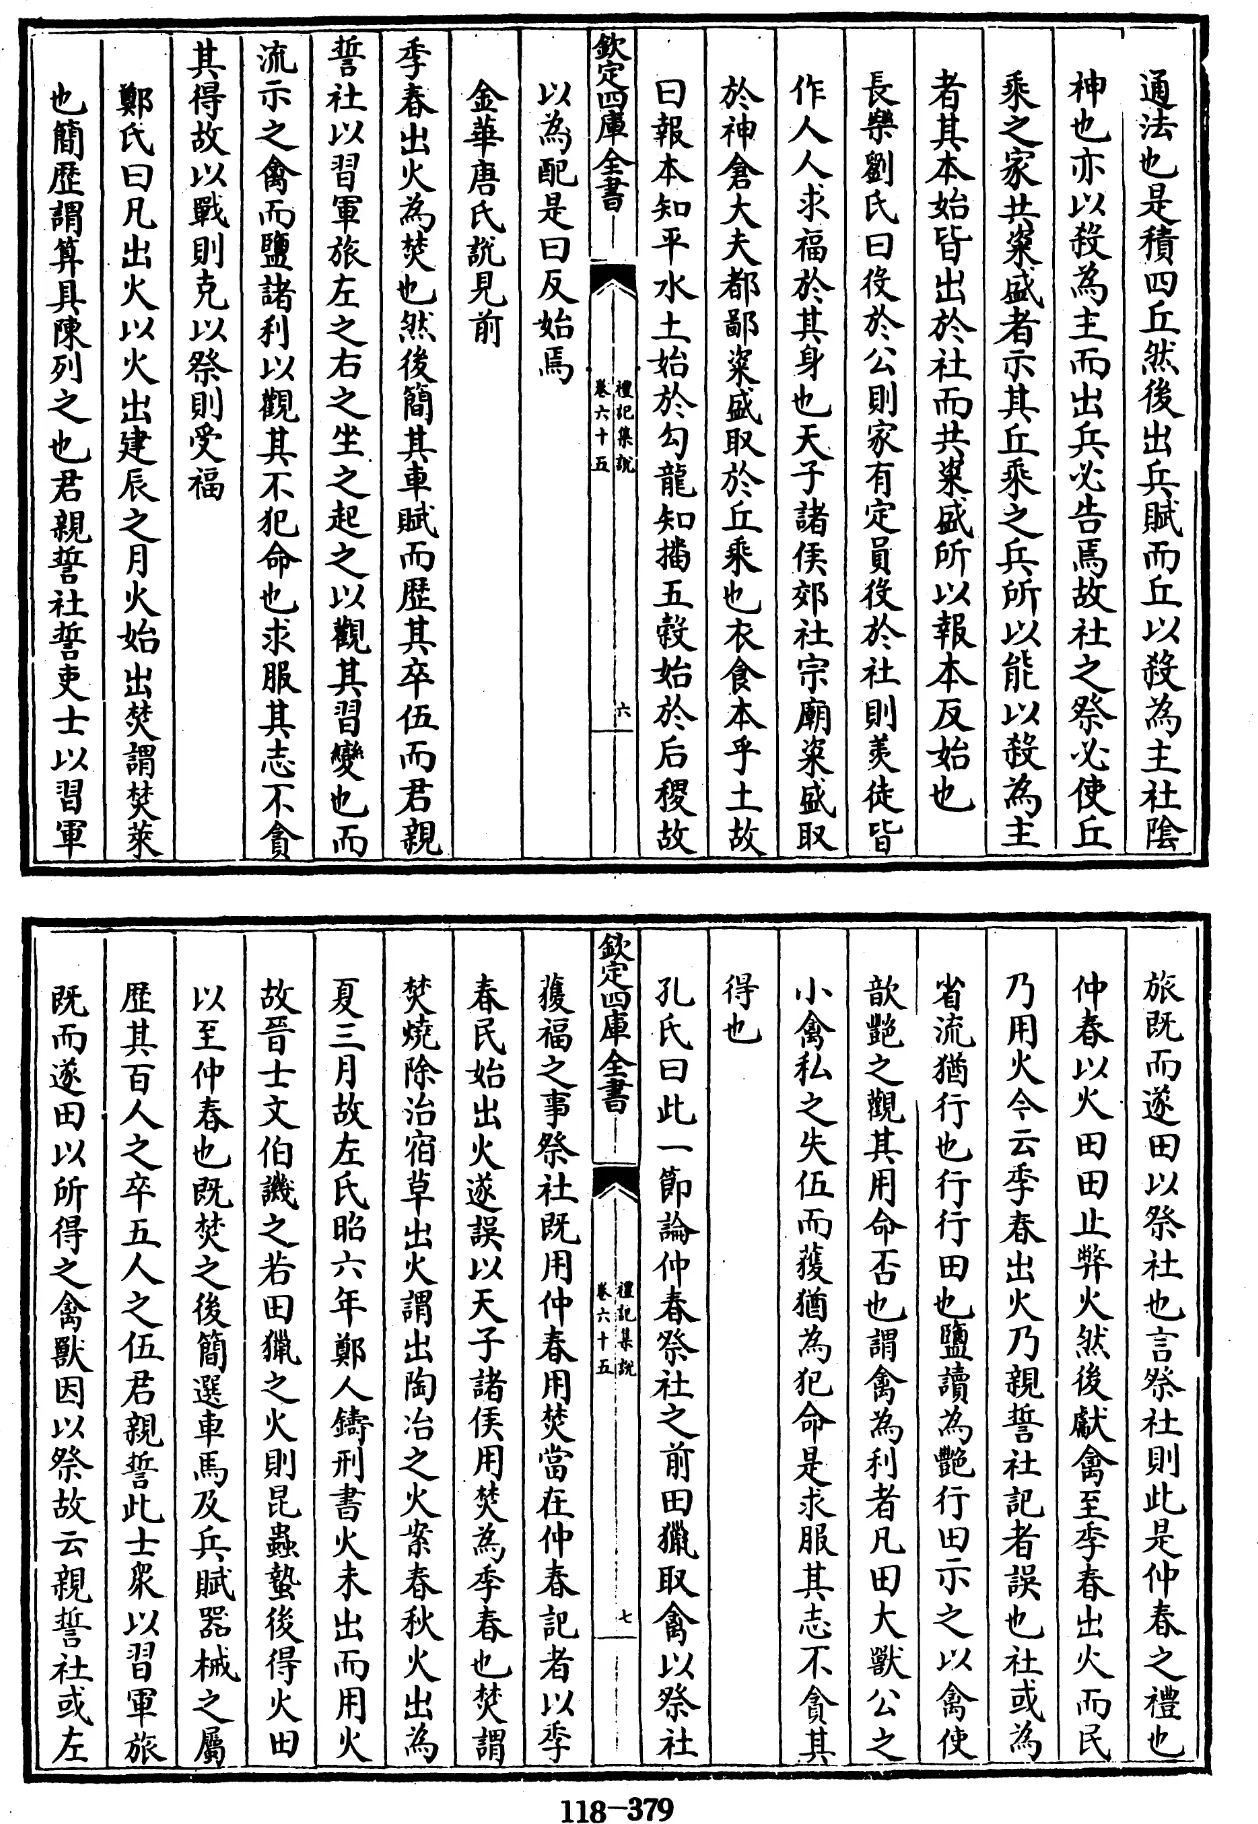 通法也是積四丘然後出兵賦而丘以殺為主社陰
神也亦以殺為主而出兵必告焉故社之祭必使丘
乘之家共粢盛者示其丘乘之兵所以能以殺為主
者其本始皆出於社而共粢盛所以報本反始也
長樂劉氏曰役於公則家有定員役於社則羨徒皆
作人人求福於其身也天子諸侯郊社宗廟粢盛取
於神倉大夫都鄙粢盛取於丘乘也衣食本乎土故
曰報本知平水土始於勾龍知播五穀始於后稷故
欽定四庫全書
禮記集說
卷六十五
六
以為配是曰反始焉
金華唐氏說見前
季春出火為焚也然後簡其車賦而歷其卒伍而君親
誓社以習軍旅左之右之坐之起之以觀其習變也而
流示之禽而鹽諸利以觀其不犯命也求服其志不貪
其得故以戰則克以祭則受福
鄭氏曰凡出火以火出建辰之月火始出焚謂焚萊
也簡歷謂算具陳列之也君親誓社誓吏士以習軍
旅既而遂田以祭社也言祭社則此是仲春之禮也
仲春以火田田止弊火然後獻禽至季春出火而民
乃用火今云季春出火乃親誓社記者誤也社或為
省流猶行也行行田也鹽讀為艷行田示之以禽使
歆艷之觀其用命否也謂禽為利者凡田大獸公之
小禽私之失伍而獲猶為犯命是求服其志不貪其
得也
孔氏曰此一節論仲春祭社之前田獵取禽以祭社
欽定四庫全書
禮記集說
卷六十五
七
獲福之事祭社既用仲春用焚當在仲春記者以季
春民始出火遂誤以天子諸侯用焚為季春也焚謂
焚燒除治宿草出火謂出陶冶之火案春秋火出為
夏三月故左氏昭六年鄭人鑄刑書火未出而用火
故晉士文伯譏之若田獵之火則昆蟲蟄後得火田
以至仲春也既焚之後簡選車馬及兵賦器械之屬
歷其百人之卒五人之伍君親誓此士衆以習軍旅
既而遂田以所得之禽獸因以祭故云親誓社或左
118-379